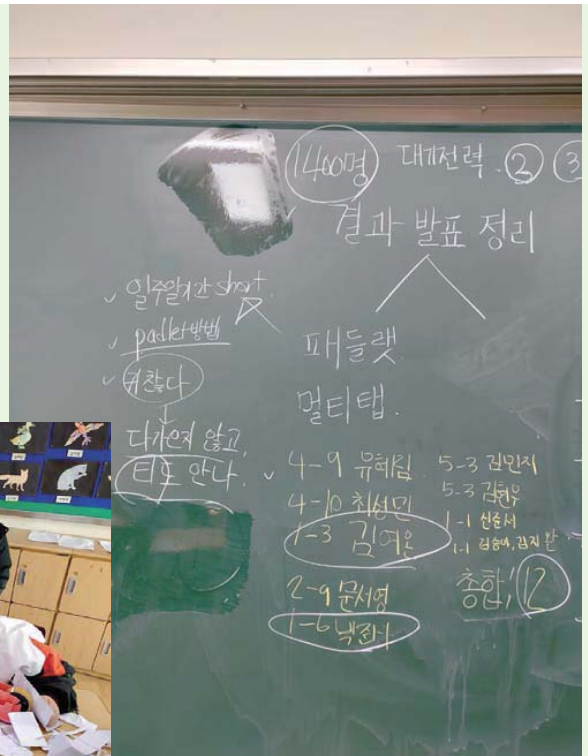 1400명 대기전력. ② ③
결과 발표 정리
✓ 일주일기간 short
✓ padlet방법
✓ 귀찮다
↓
다가오지 않고,
티도 안나.
패들랫
멀티탭.
✓ 4-9 유혜림
4-10 최성민
1-3 김여온
2-9 문서영
1-6
5-3 김민지
5-3 김현우
1-1 신준서
1-1 김승아, 김지완
총합! 12